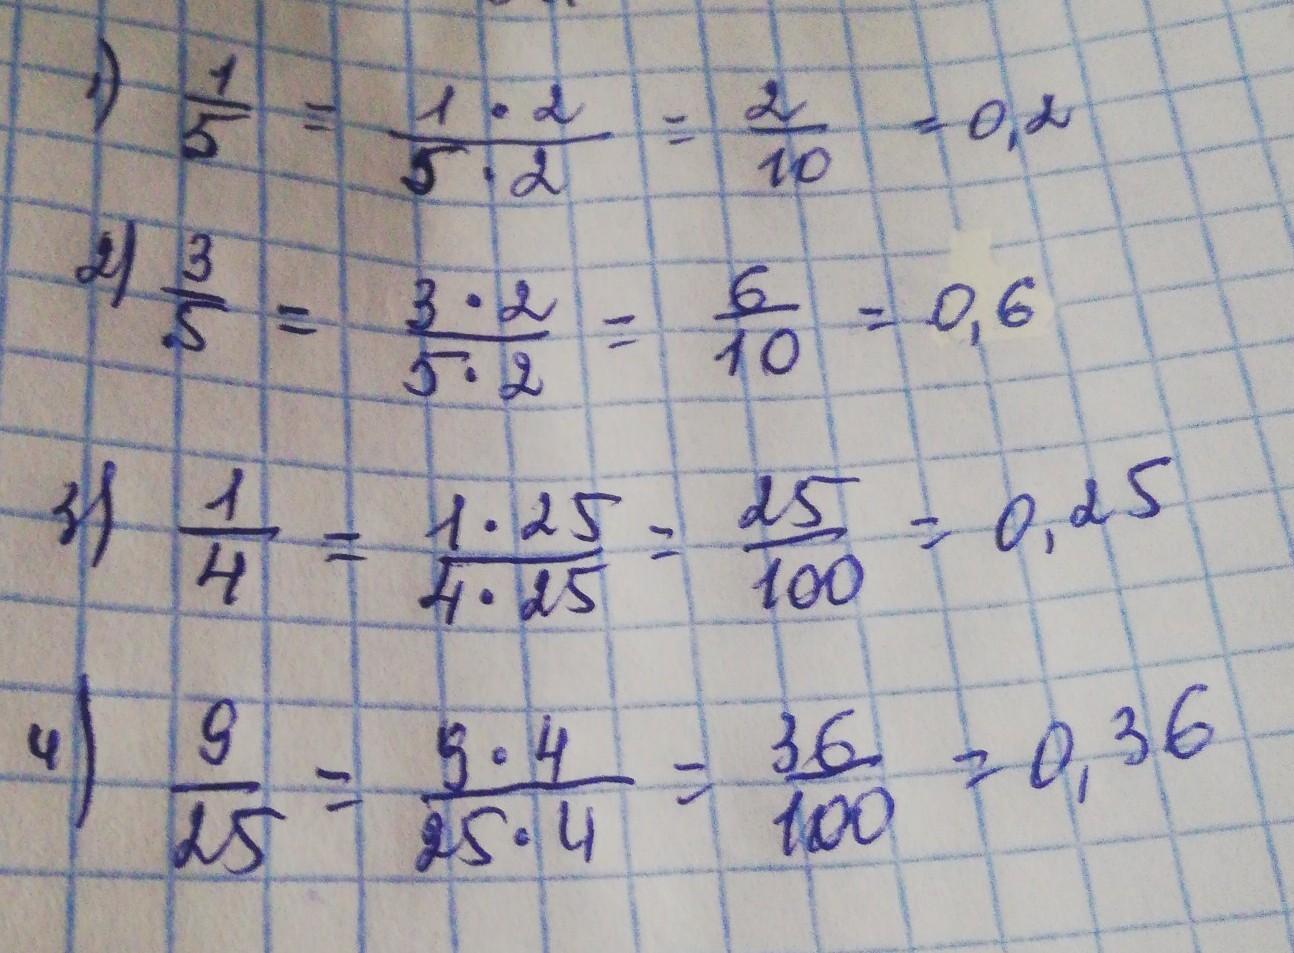 1) 1/5 = 1·2/5·2 = 2/10 = 0,2
2) 3/5 = 3·2/5·2 = 6/10 = 0,6
3) 1/4 = 1·25/4·25 = 25/100 = 0,25
4) 9/25 = 9·4/25·4 = 36/100 = 0,36